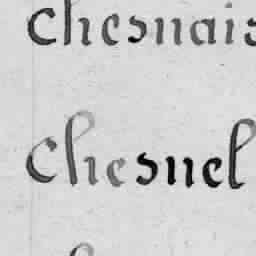 Chesnais
Chesnel